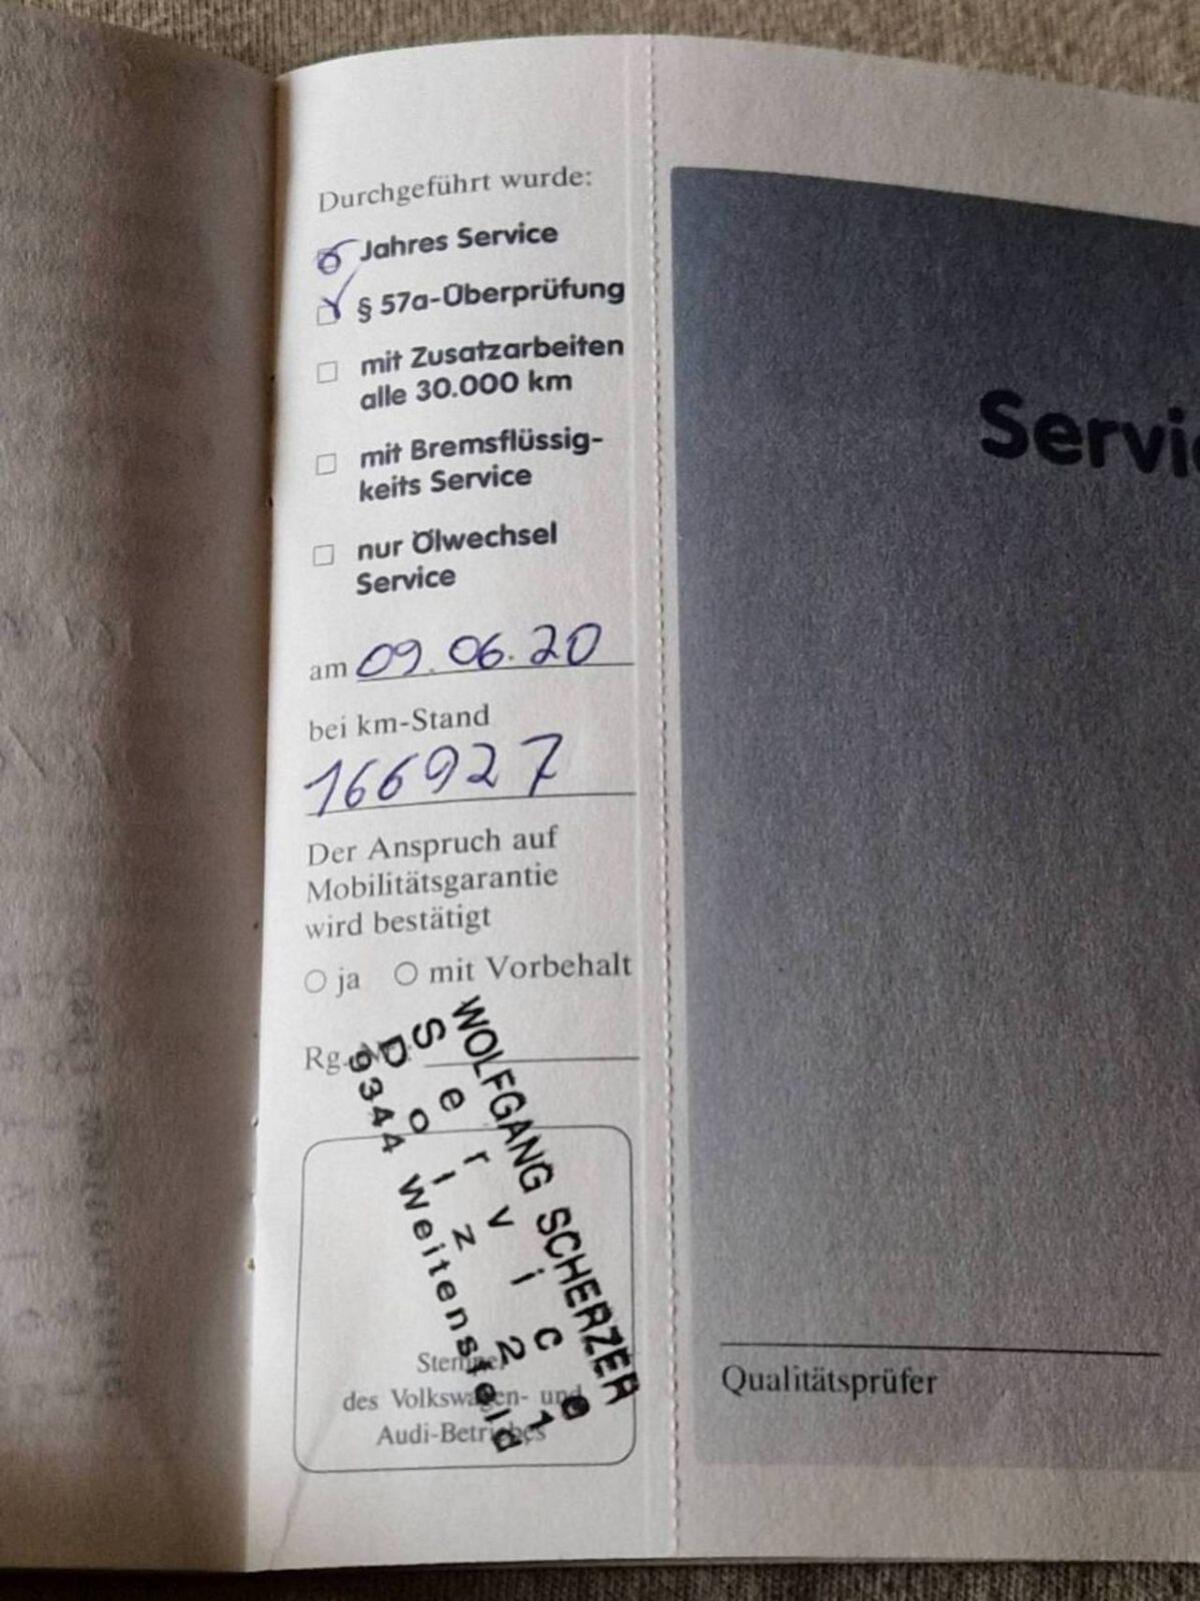 Durchgeführt wurde:
Jahres Service
§ 57a-Überprüfung
mit Zusatzarbeiten
alle 30.000 km
mit Bremsflüssig-
keits Service
nur Ölwechsel
Service
am 09.06.20
bei km-Stand
166927
Der Anspruch auf
Mobilitätsgarantie
wird bestätigt
ja mit Vorbehalt
Rg.
WOLFGANG SCHERZER
Service
Dolz 21
9344 Weitensfeld
Stempel
des Volkswagen- und
Audi-Betriebes
Qualitätsprüfer